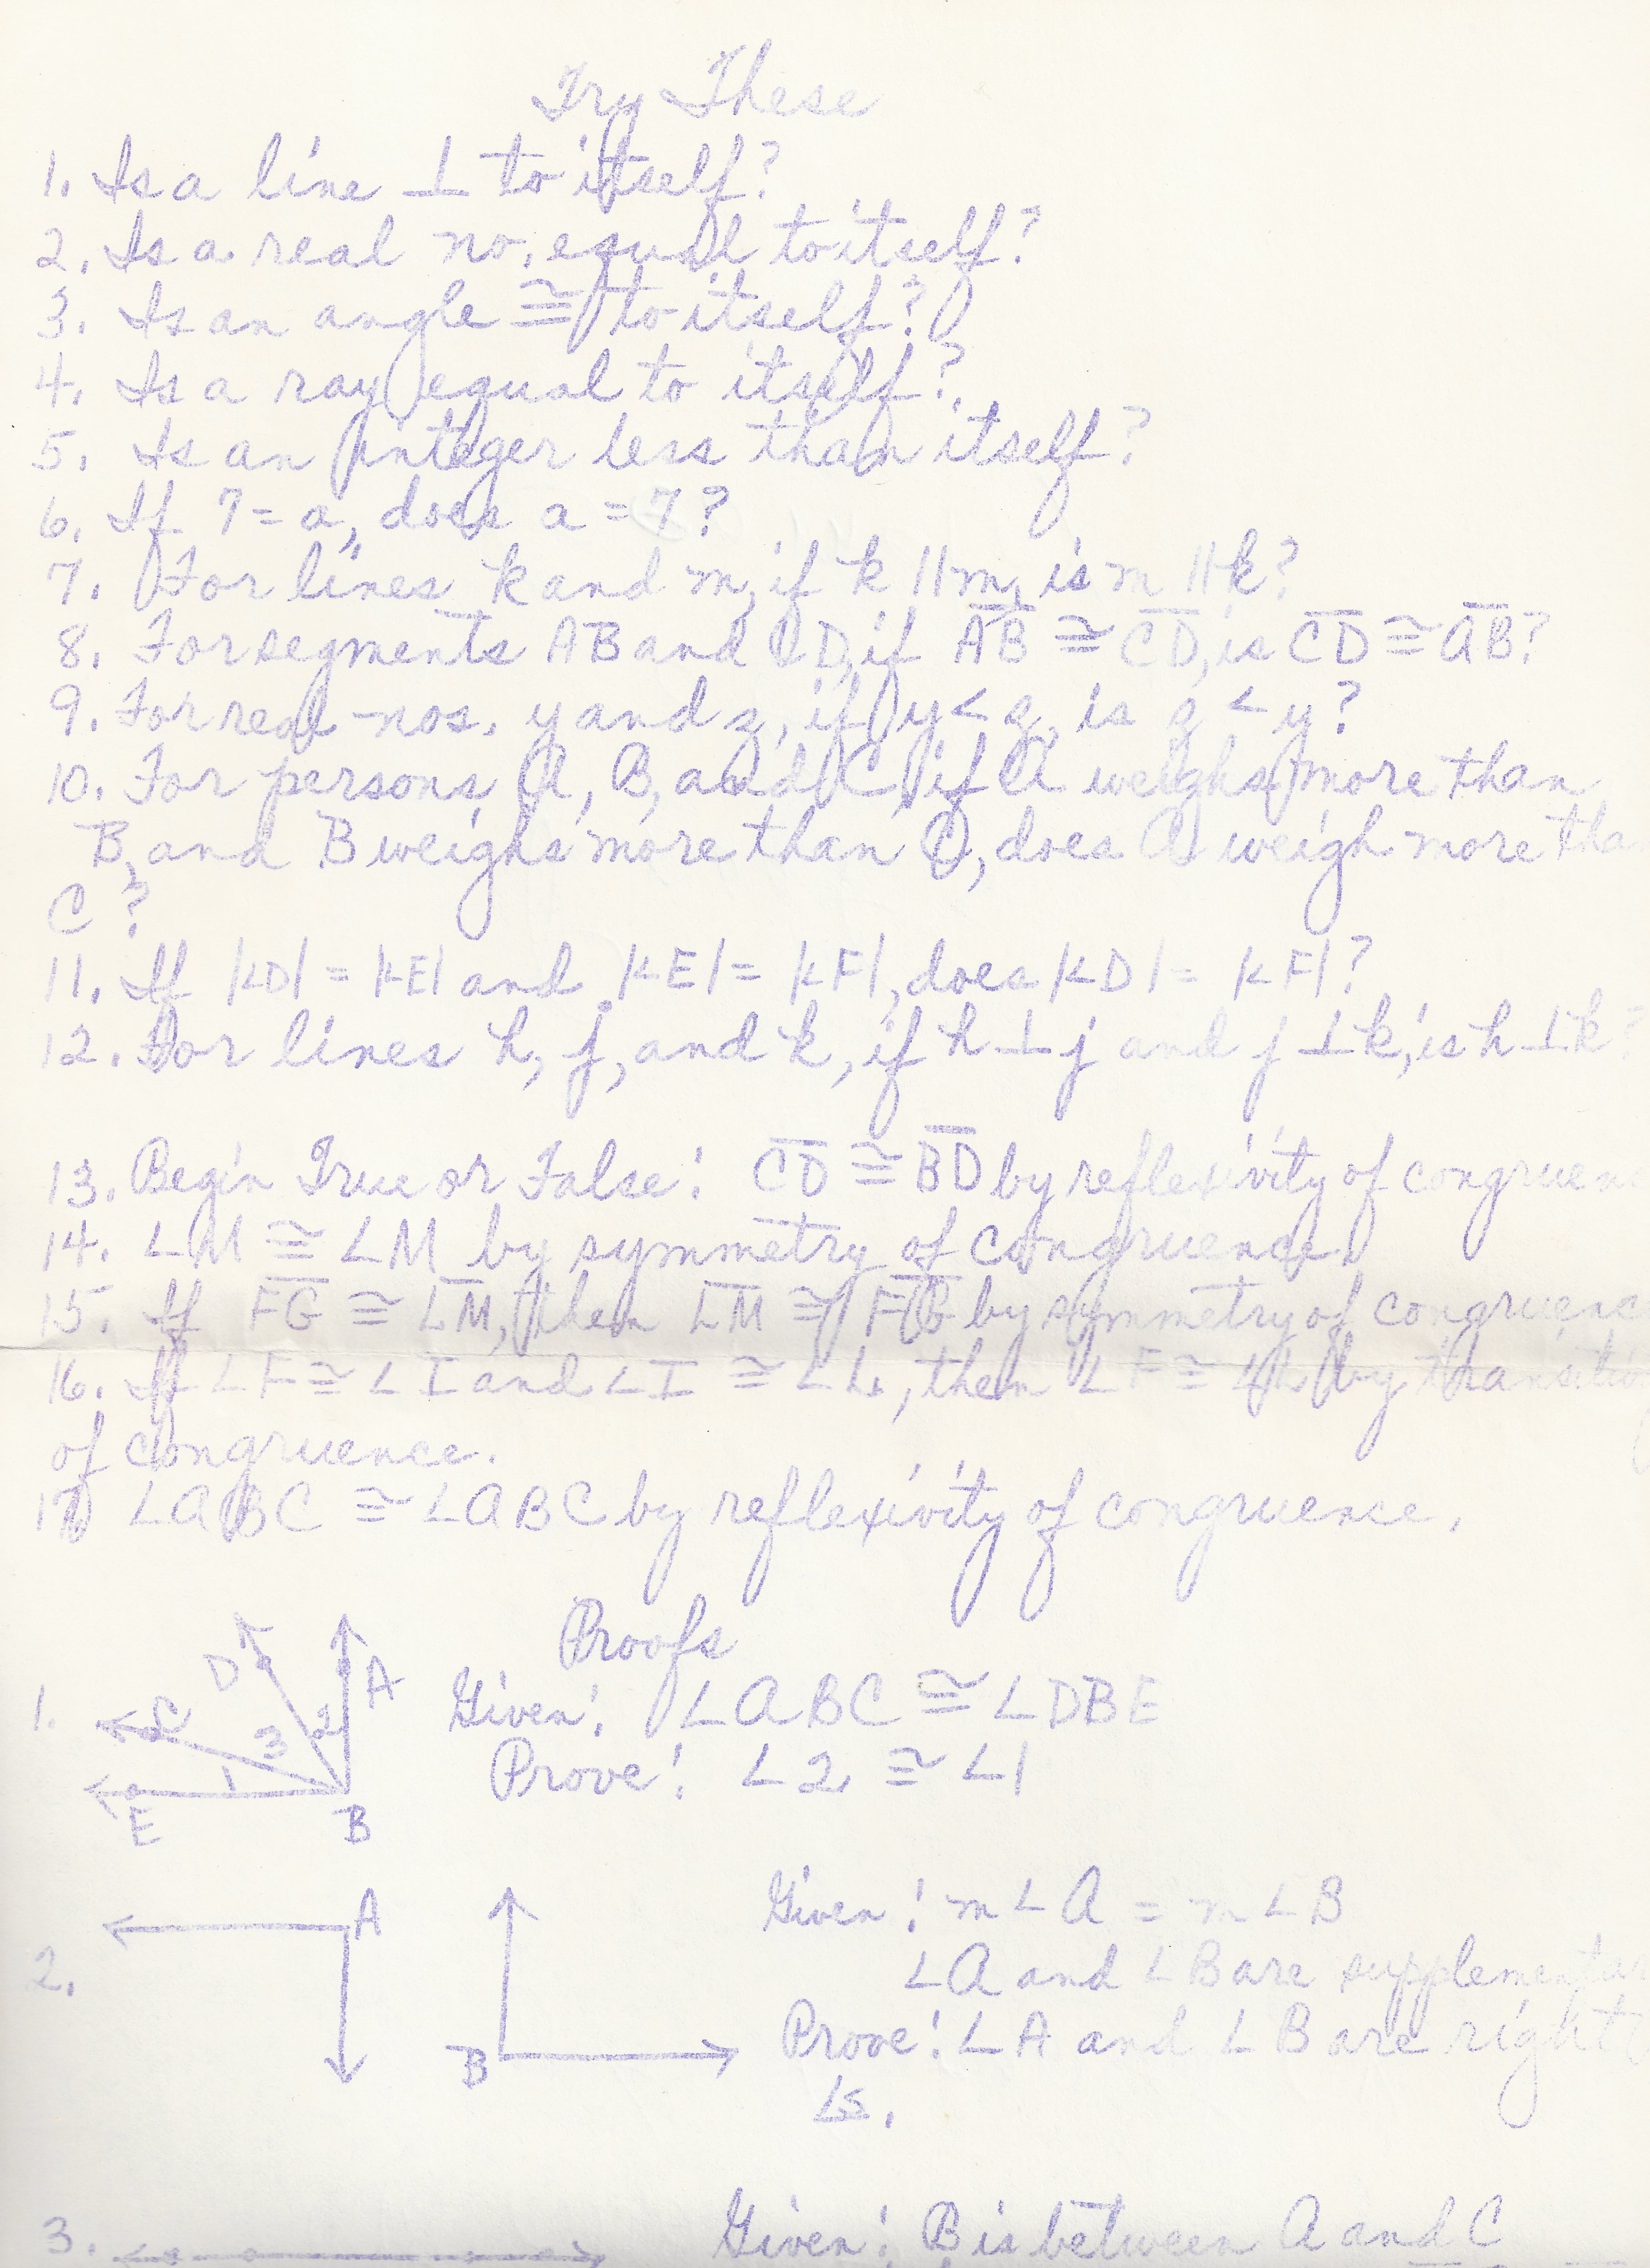 Try These
1. Is a line ⊥ to itself?
2. Is a real no. equal to itself?
3. Is an angle ≅ to itself?
4. Is a ray equal to itself?
5. Is an integer less than itself?
6. If 7 = a, does a = 7?
7. For lines k and m, if k || m, is m || k?
8. For segments AB and CD, if A̅B̅ ≅ C̅D̅, is C̅D̅ ≅ A̅B̅?
9. For real nos. y and z, if y < z, is z < y?
10. For persons A, B, and C, if A weighs more than
B, and B weighs more than C, does A weigh more tha
C?
11. If |KD| = |KE| and |KE| = |KF|, does |KD| = |KF|?
12. For lines h, j, and k, if h ⊥ j and j ⊥ k, is h ⊥ k?
13. Begin True or False: C̅D̅ ≅ B̅D̅ by reflexivity of congruen
14. ∠M ≅ ∠M by symmetry of congruence.
15. If F̅G̅ ≅ L̅M̅, then L̅M̅ ≅ F̅G̅ by symmetry of congruenc
16. If ∠F ≅ ∠I and ∠I ≅ ∠L, then ∠F ≅ ∠L by transitiv
of congruence.
17 ∠ABC ≅ ∠ABC by reflexivity of congruence.
Proofs
1.
D
A
C
3
2
1
E
B
Given: ∠ABC ≅ ∠DBE
Prove: ∠2 ≅ ∠1
2.
A
B
Given: m∠A = m∠B
∠A and ∠B are supplementar
Prove: ∠A and ∠B are right
∠s.
3.
Given: B is between A and C